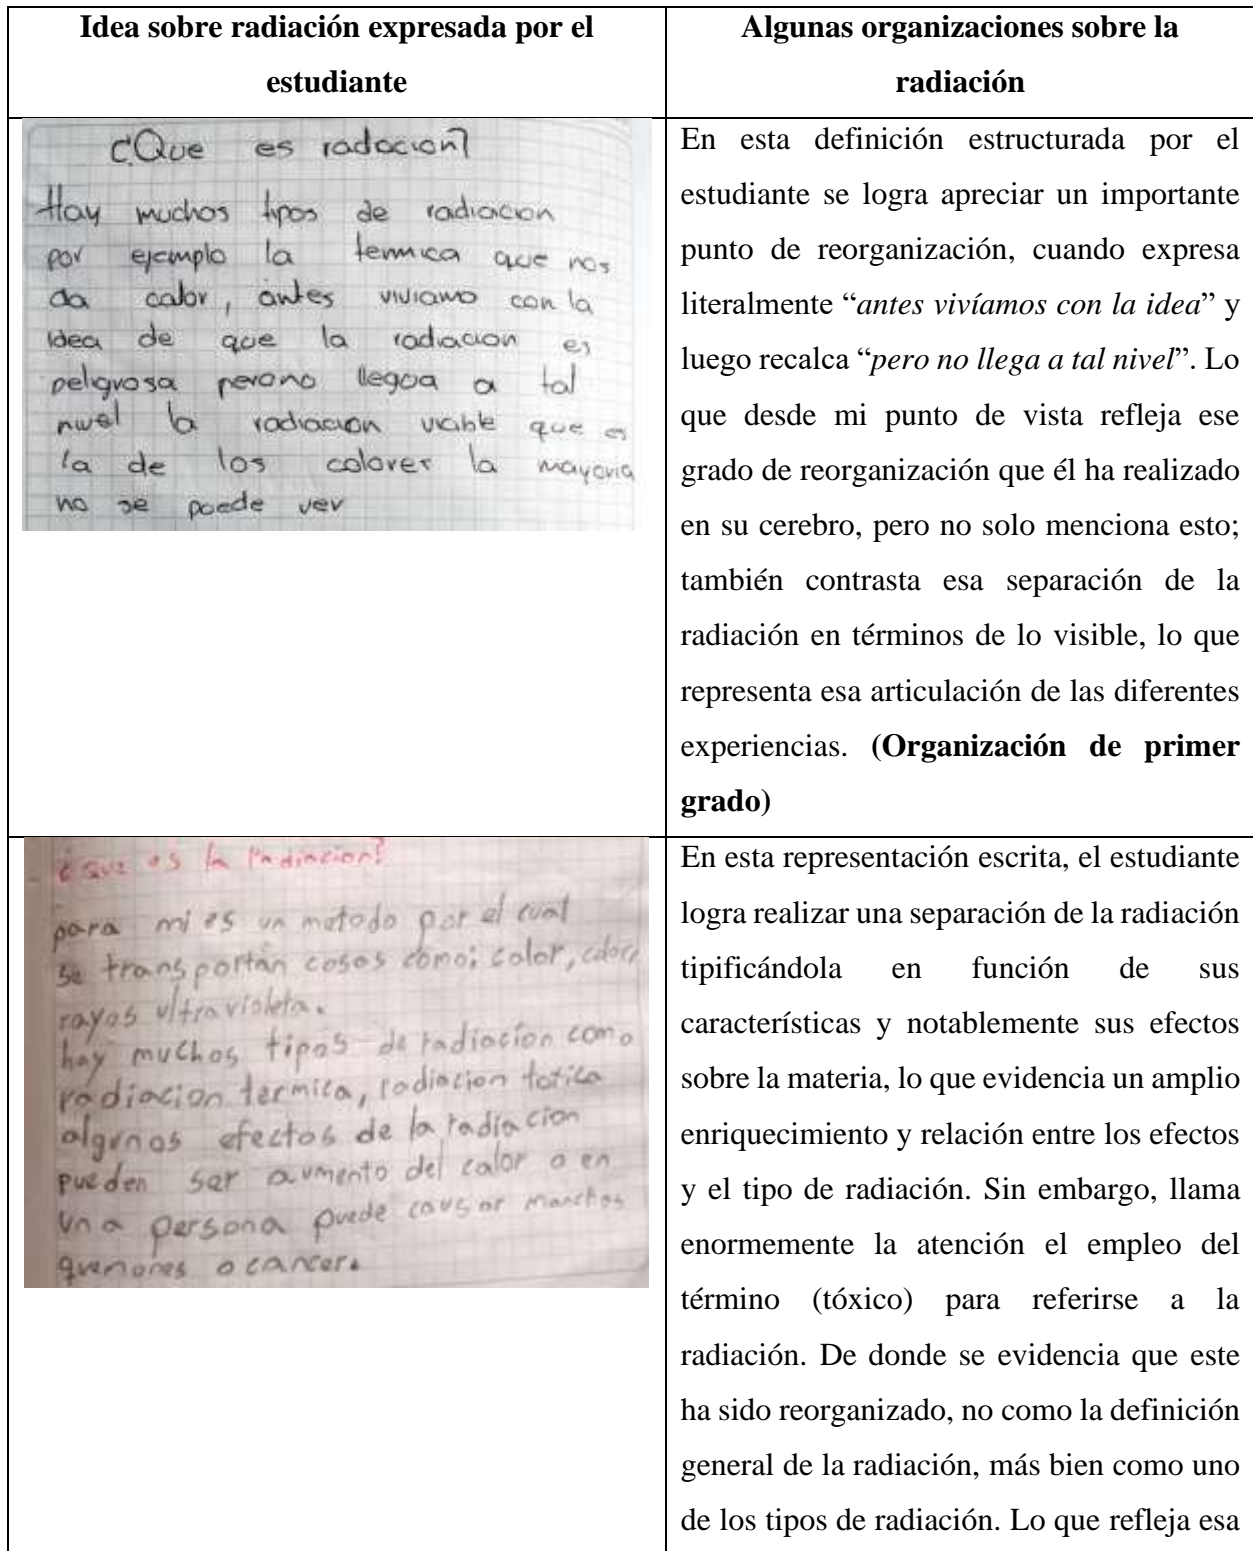 Idea sobre radiación expresada por el
estudiante
Algunas organizaciones sobre la
radiación
¿Que es radacion?
Hay muchos tipos de radiacion
por ejemplo la termica que nos
da calor, antes viviamo con la
idea de que la radiacion es
peligrosa perono llegoa a tal
nivel la radiacion visible que es
la de los colores la mayoria
no se puede ver
En esta definición estructurada por el
estudiante se logra apreciar un importante
punto de reorganización, cuando expresa
literalmente “antes vivíamos con la idea” y
luego recalca “pero no llega a tal nivel”. Lo
que desde mi punto de vista refleja ese
grado de reorganización que él ha realizado
en su cerebro, pero no solo menciona esto;
también contrasta esa separación de la
radiación en términos de lo visible, lo que
representa esa articulación de las diferentes
experiencias. (Organización de primer
grado)
¿Que es la radiacion?
para mi es un metodo por el cual
se transportan cosas como: calor,
rayos ultravioleta.
hay muchos tipos de radiación como
radiacion termica, radiacion totica
algunos efectos de la radiacion
pueden ser aumento del calor o en
una persona puede causar manchas
quemones o cancer.
En esta representación escrita, el estudiante
logra realizar una separación de la radiación
tipificándola en función de sus
características y notablemente sus efectos
sobre la materia, lo que evidencia un amplio
enriquecimiento y relación entre los efectos
y el tipo de radiación. Sin embargo, llama
enormemente la atención el empleo del
término (tóxico) para referirse a la
radiación. De donde se evidencia que este
ha sido reorganizado, no como la definición
general de la radiación, más bien como uno
de los tipos de radiación. Lo que refleja esa